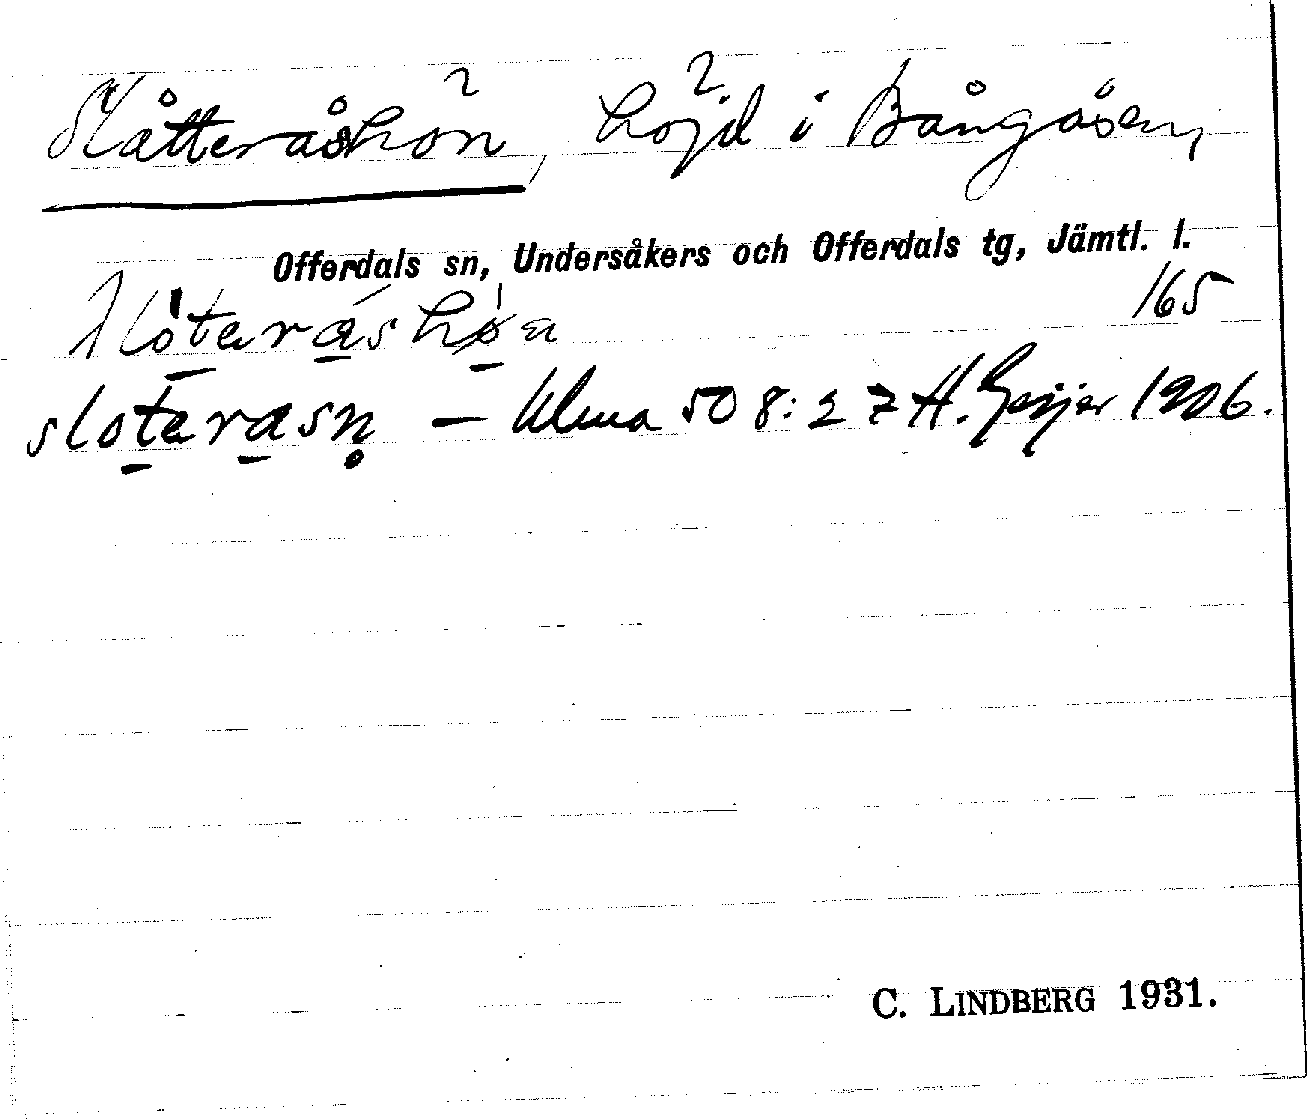 Slåtteråshön, höjd i Bångåsen,
Offerdals sn, Undersåkers och Offerdals tg, Jämtl. l.
165
slòtarás høa
slotarasn̥ – Ulma 508:27 H. Geijer 1906.
C. LINDBERG 1931.